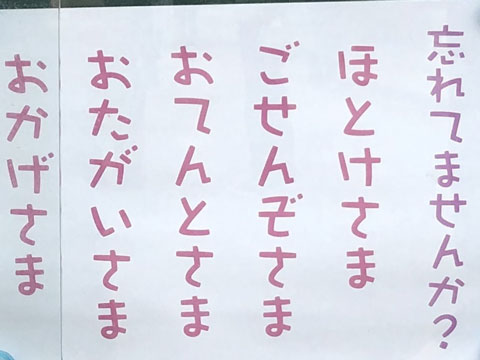 忘れてませんか?
ほとけさま
ごせんぞさま
おてんとさま
おたがいさま
おかげさま